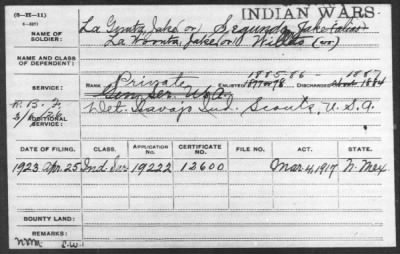 (3-H-11)
INDIAN WARS.
NAME OF SOLDIER:
La Gunta Jake (or) Segunda, Jake (alias)
La Woonta, Jake (or) Willas (or)
NAME AND CLASS OF DEPENDENT:
SERVICE:
RANK Private ENLISTED 1885-86 DISCHARGED 1887
Gen. Ser. U.S.A. 1884
ADDITIONAL SERVICE:
Det. Navajo Ind. Scouts, U.S.A.
DATE OF FILING. CLASS. APPLICATION NO. CERTIFICATE NO. FILE NO. ACT. STATE.
1923 Apr. 25 Ind. Sur. 19222 12600 Mar. 4, 1917 N. Mex
BOUNTY LAND:
REMARKS: